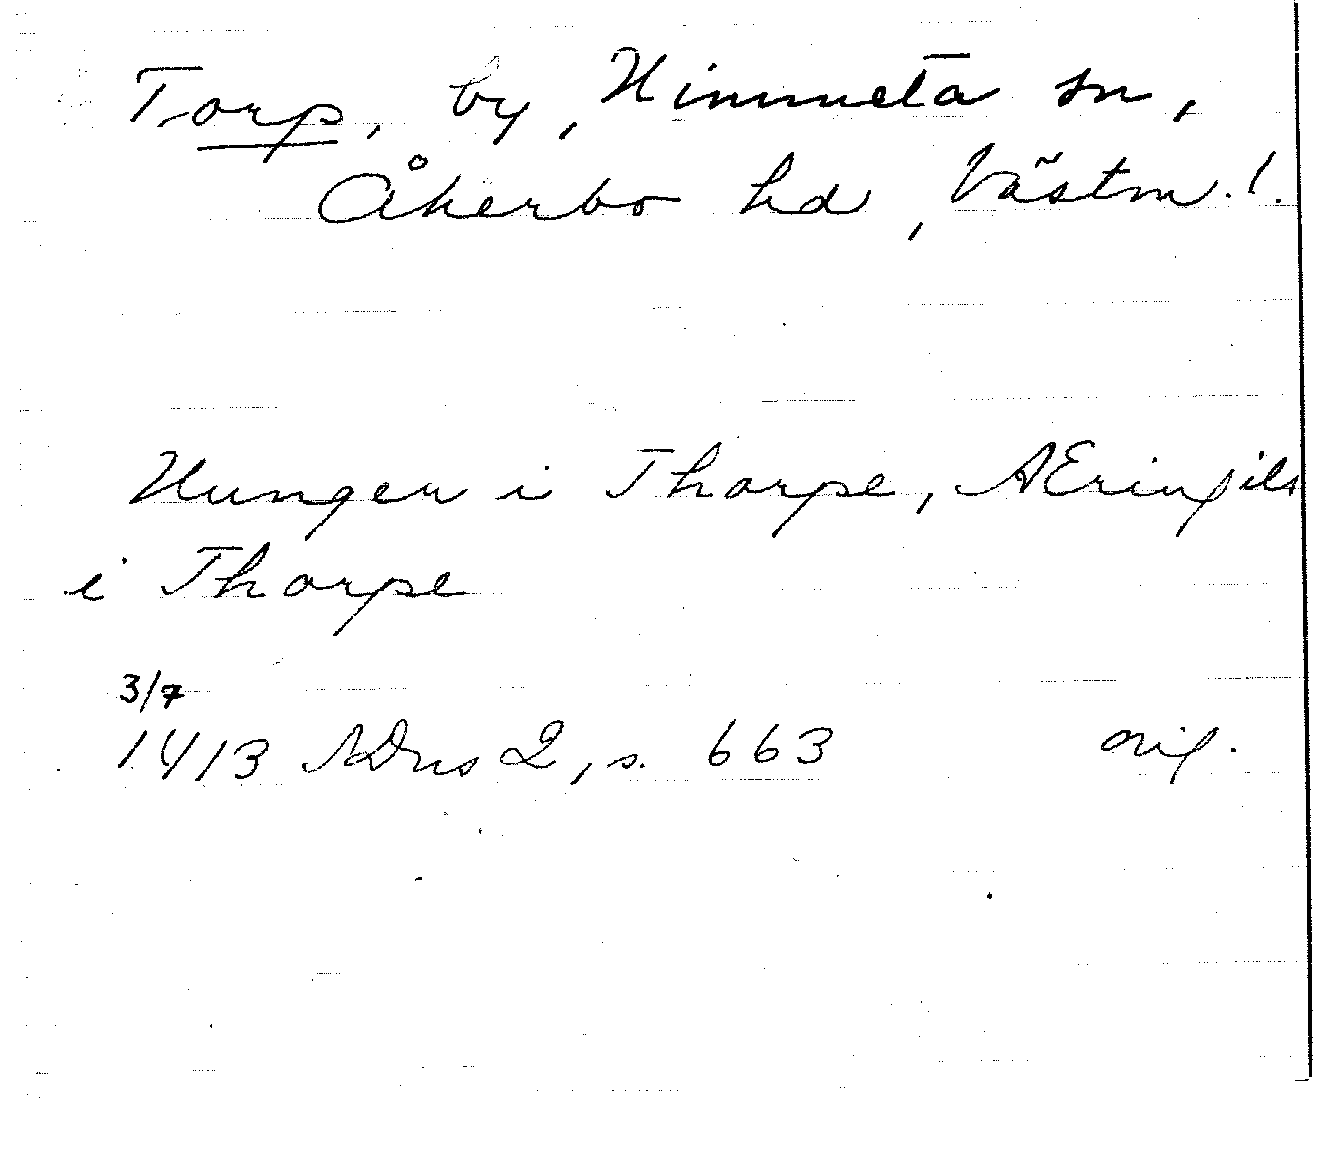 Torp, by, Himmeta sn,
Åkerbo hd, Västm. l.
Hunger i Thorpe, AEringils
i Thorpe
3/7
1413 SDns 2, s. 663 orig.